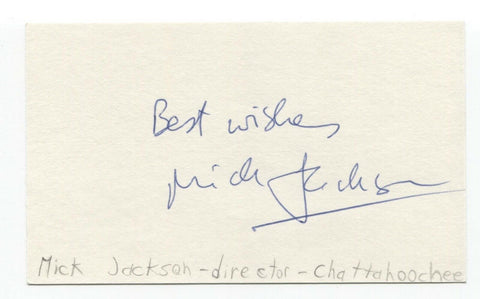 Best wishes
Mick Jackson
Mick Jackson - director - Chattahoochee